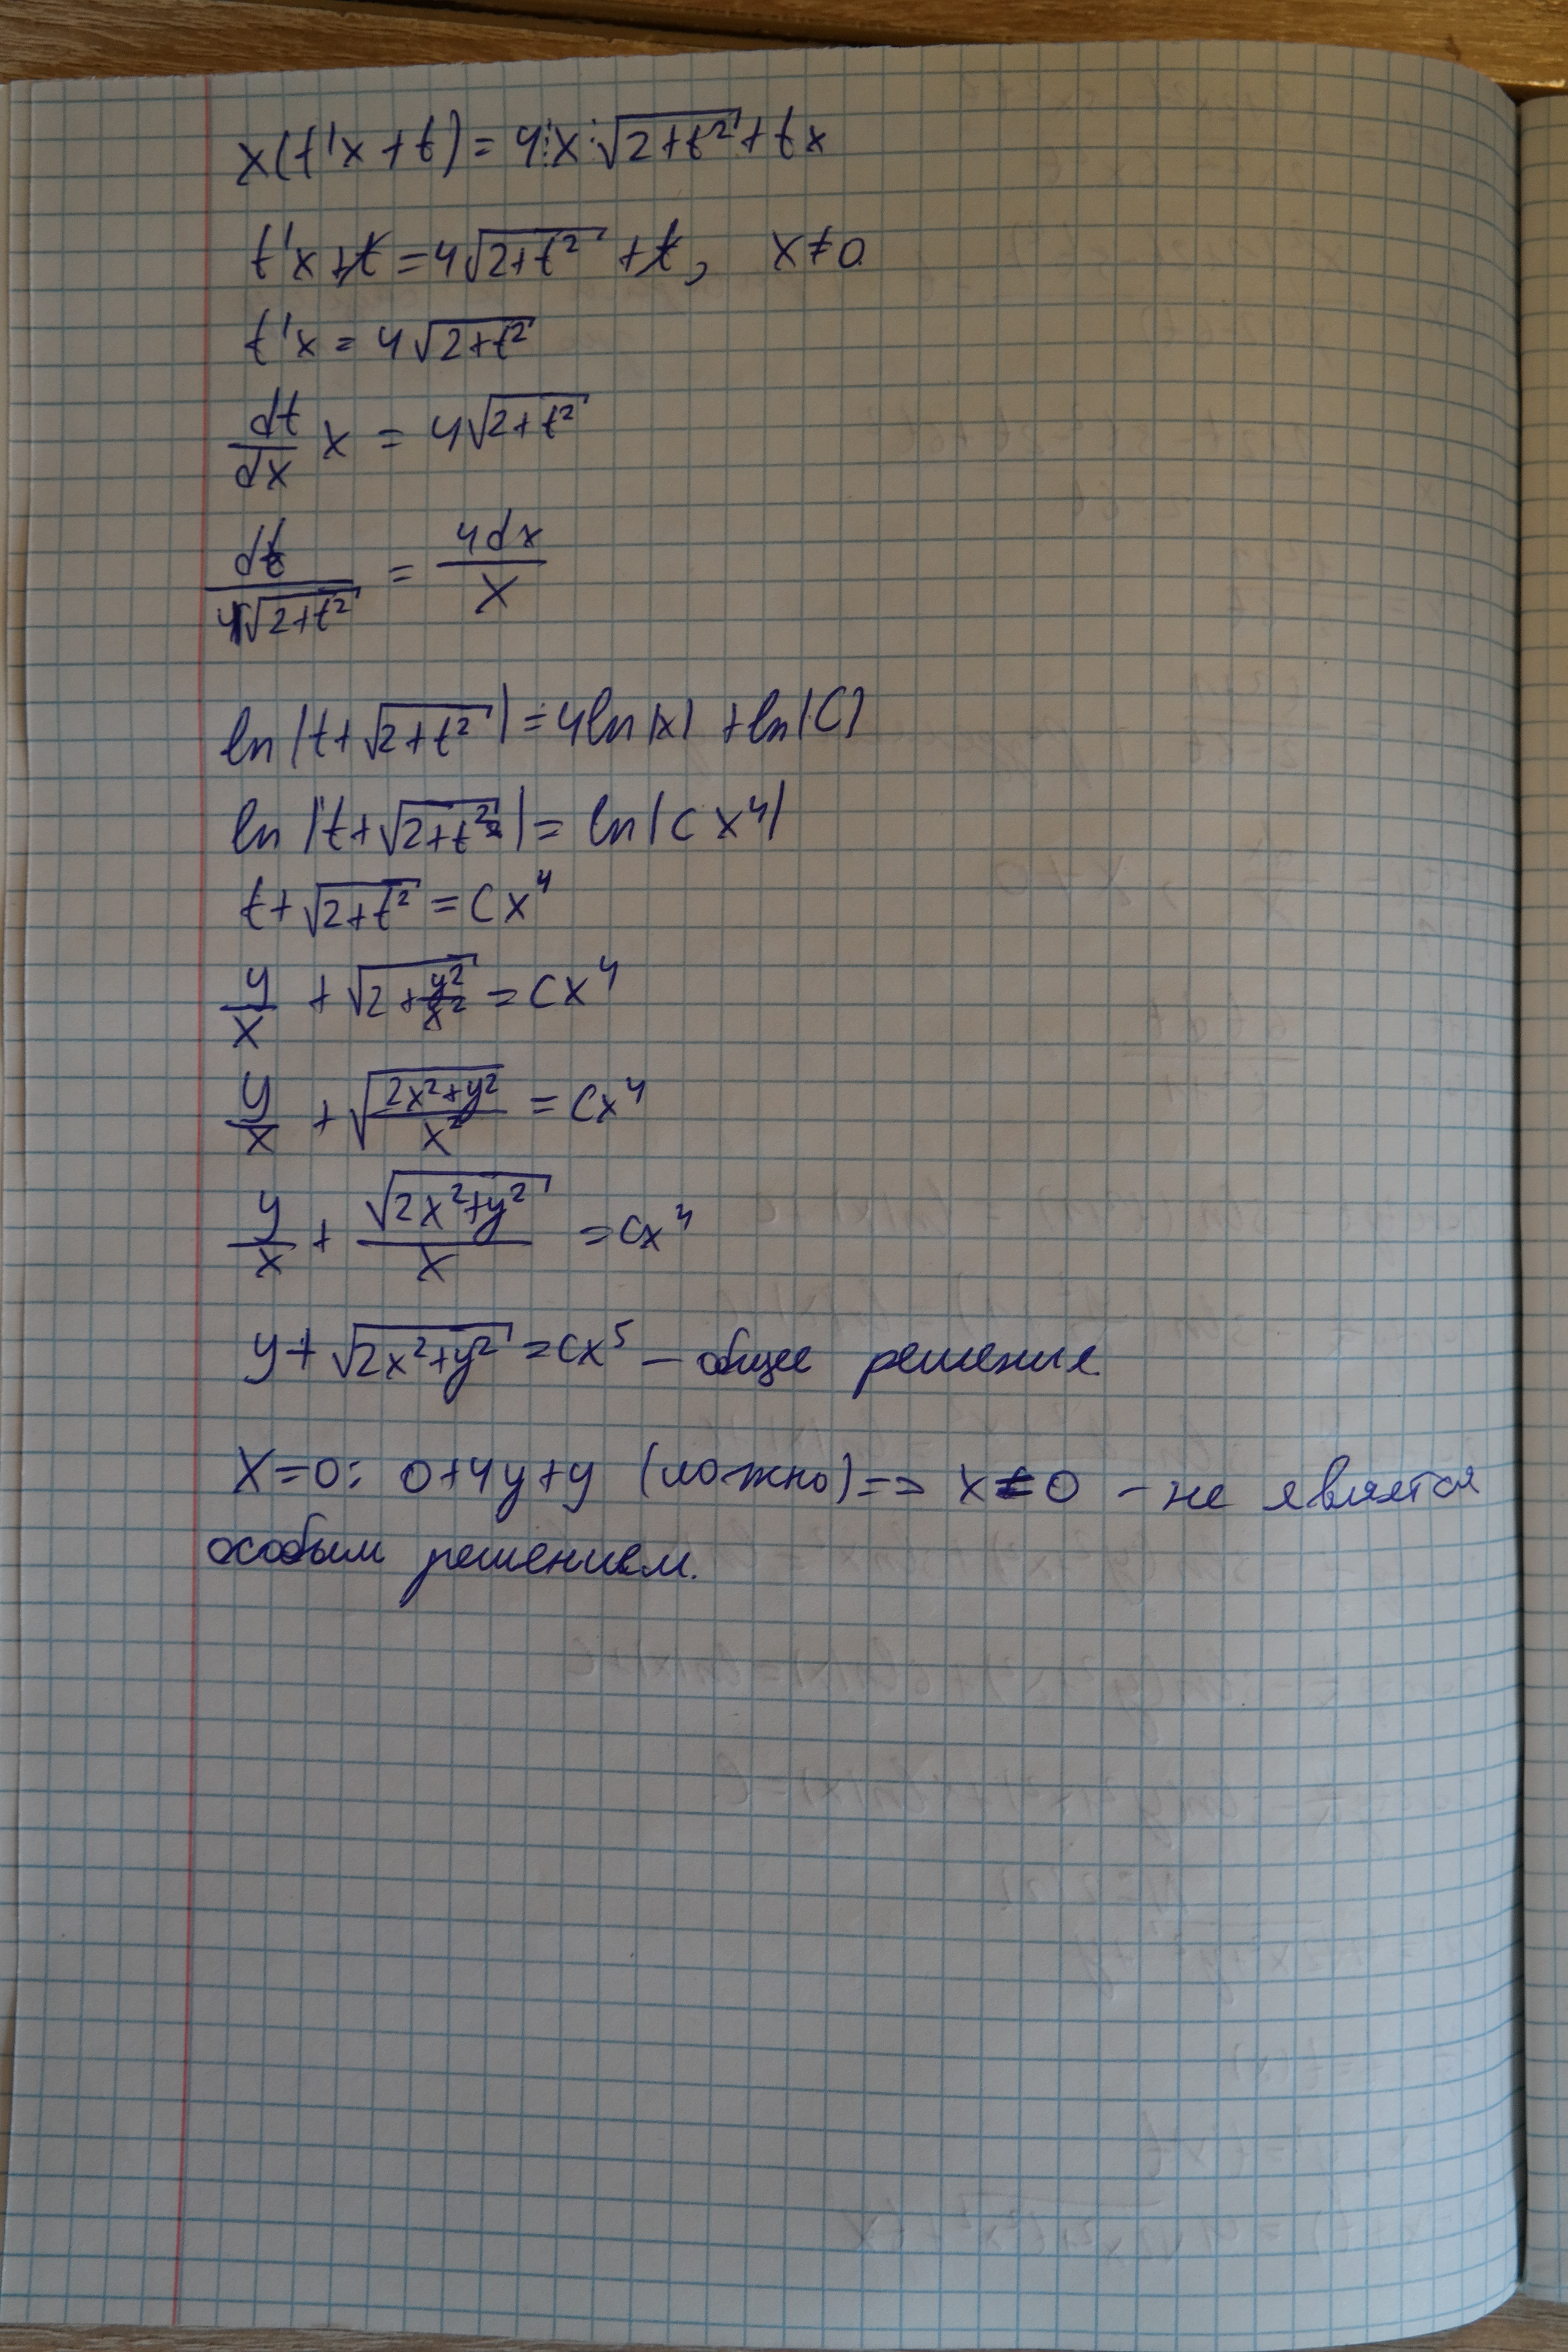 x(t'x+t)=4·x·√(2+t²)+tx
t'x+t=4√(2+t²)+t, x≠0
t'x=4√(2+t²)
dt/dx x = 4√(2+t²)
dt/√(2+t²) = 4dx/x
ln|t+√(2+t²)|=4ln|x|+ln|C|
ln|t+√(2+t²)|=ln|Cx⁴|
t+√(2+t²)=Cx⁴
y/x+√(2+y²/x²)=Cx⁴
y/x+√((2x²+y²)/x²)=Cx⁴
y/x+√(2x²+y²)/x=Cx⁴
y+√(2x²+y²)=Cx⁵ – общее решение.
X=0: 0+4y+y (ложно)=> x=0 – не является
особым решением.